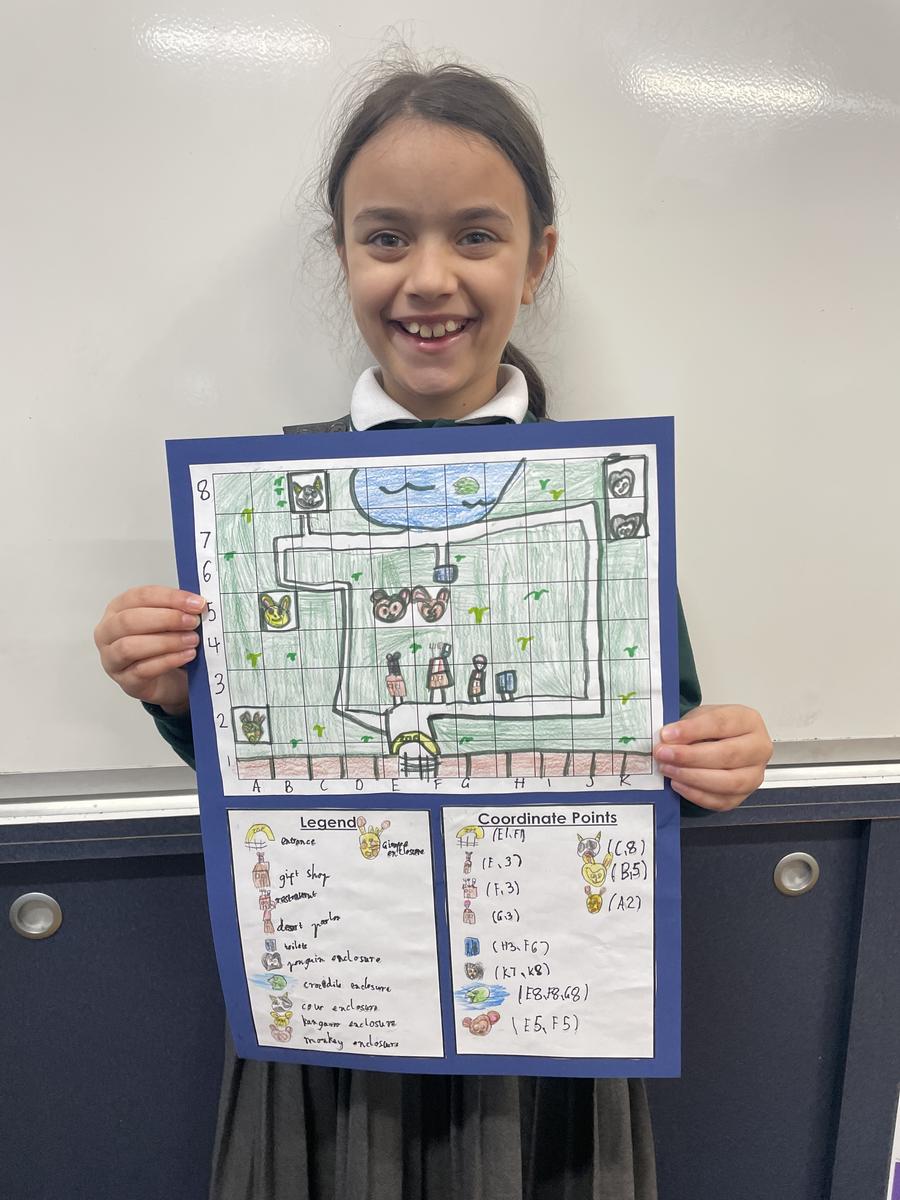 8
7
6
5
4
3
2
1
ZOO
A B C D E F G H I J K
Legend
entrance
gift shop
restaurant
desert parlor
toilets
penguin enclosure
crocodile enclosure
cow enclosure
kangaroo enclosure
monkey enclosure
enclosure
Coordinate Points
(E1,F1)
(E,3)
(F,3)
(G,3)
(H3,F6)
(K7,K8)
(E8,F8,G8)
(E5,F5)
(C,8)
(B,5)
(A2)